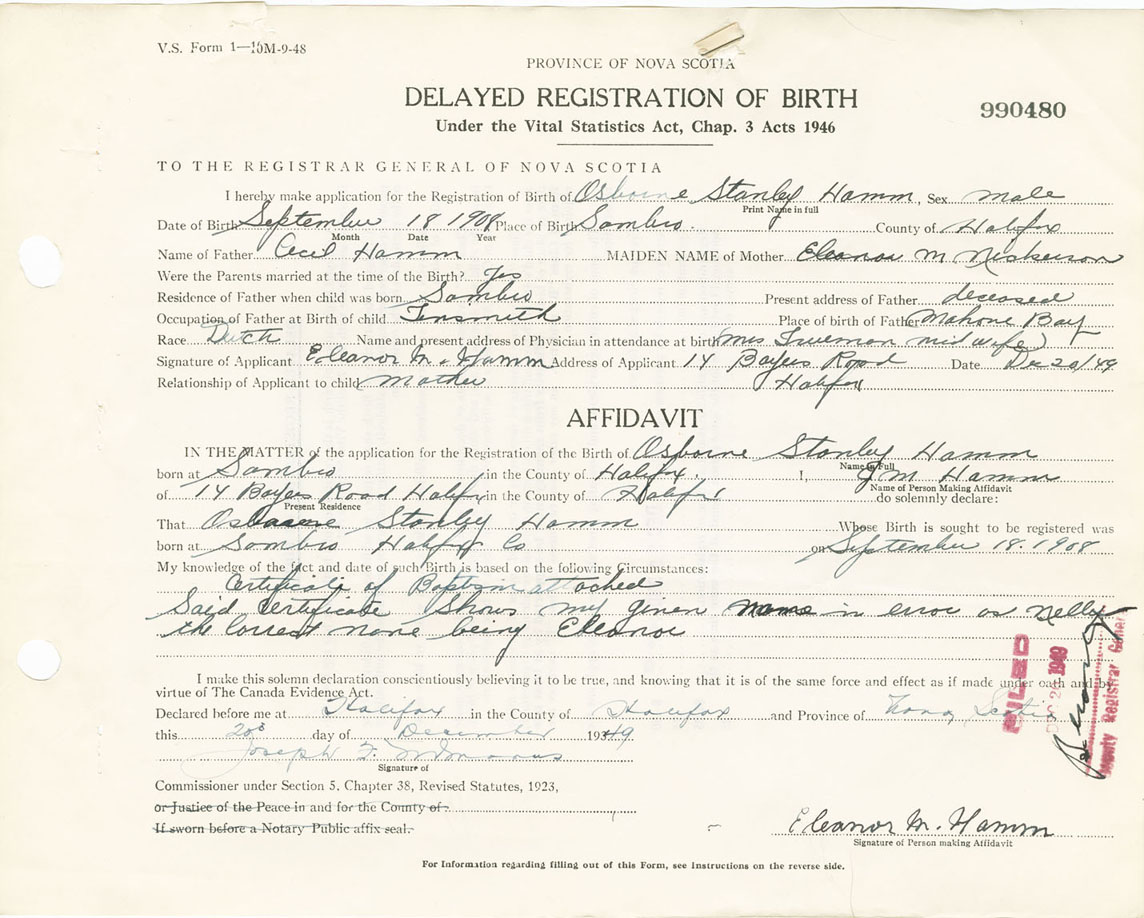 V.S. Form 1—10M-9-48
PROVINCE OF NOVA SCOTIA
DELAYED REGISTRATION OF BIRTH
990480
Under the Vital Statistics Act, Chap. 3 Acts 1946
TO THE REGISTRAR GENERAL OF NOVA SCOTIA
I hereby make application for the Registration of Birth of Osborne Stanley Hamm, Sex male
Print Name in full
Date of Birth September 18 1908 Place of Birth Sambro. County of Halifax
Month Date Year
Name of Father Cecil Hamm MAIDEN NAME of Mother Eleanor M Nickerson
Were the Parents married at the time of the Birth? Yes
Residence of Father when child was born Sambro Present address of Father deceased
Occupation of Father at Birth of child Tinsmith Place of birth of Father Mahone Bay
Race Dutch Name and present address of Physician in attendance at birth Mrs Trueman midwife
Signature of Applicant Eleanor M. Hamm Address of Applicant 14 Bayers Road Date Dec 20/49
Relationship of Applicant to child mother Halifax
AFFIDAVIT
IN THE MATTER of the application for the Registration of the Birth of Osborne Stanley Hamm
Name in Full
born at Sambro in the County of Halifax. I, M Hamm
Name of Person Making Affidavit
of 14 Bayers Road Halifax in the County of Halifax do solemnly declare:
Present Residence
That Osborne Stanley Hamm Whose Birth is sought to be registered was
born at Sambro Halifax Co on September 18. 1908
My knowledge of the fact and date of such Birth is based on the following Circumstances:
Certificate of Baptism attached
Said Certificate shows my given name in error as Nelly
the correct name being Eleanor
I make this solemn declaration conscientiously believing it to be true, and knowing that it is of the same force and effect as if made under oath and by
virtue of The Canada Evidence Act.
Declared before me at Halifax in the County of Halifax and Province of Nova Scotia
this 20 day of December 1949
Joseph F.
Signature of
Commissioner under Section 5, Chapter 38, Revised Statutes, 1923,
or Justice of the Peace in and for the County of
If sworn before a Notary Public affix seal.
Eleanor M. Hamm
Signature of Person making Affidavit
For Information regarding filling out of this Form, see Instructions on the reverse side.
FILED
DEC 1949
Deputy Registrar